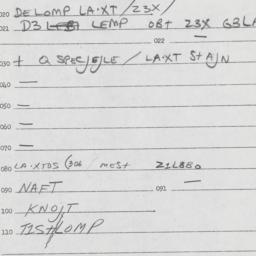 020 DELOMP LA·XT/Z3X/
021 D3L LEMP OBT Z3X G3LA
022 —
030 + Q SPECJEJLE / LAXT StAJN
040 —
050 —
060 —
070 —
080 LA·XTDS (306 / MES+ Z1L8E0
090 NAFT 091 —
100 KNOJT
110 TIS+/LOMP